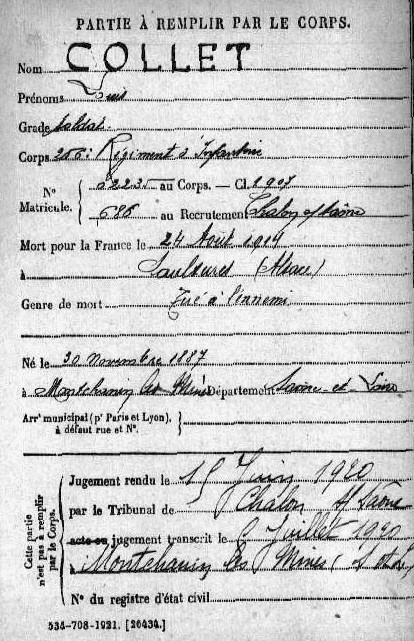 PARTIE À REMPLIR PAR LE CORPS.
Nom COLLET
Prénoms Louis
Grade soldat
Corps 256e Régiment d'Infanterie
N° Matricule. { 02231 au Corps. — Cl. 1907
686 au Recrutement Chalon s/ Saône
Mort pour la France le 24 Août 1914
à Saulxures (Alsace)
Genre de mort Tué à l'ennemi
Né le 30 Novembre 1887
à Montchanin les Mines Département Saône-et-Loire
Arrt municipal (pr Paris et Lyon),
à défaut rue et N°.
Cette partie n'est pas à remplir par le Corps.
Jugement rendu le 15 Juin 1920
par le Tribunal de Chalon s/ Saône
acte ou jugement transcrit le Juillet 1920
à Montchanin les Mines (S et L)
N° du registre d'état civil
534-708-1921. [26434.]